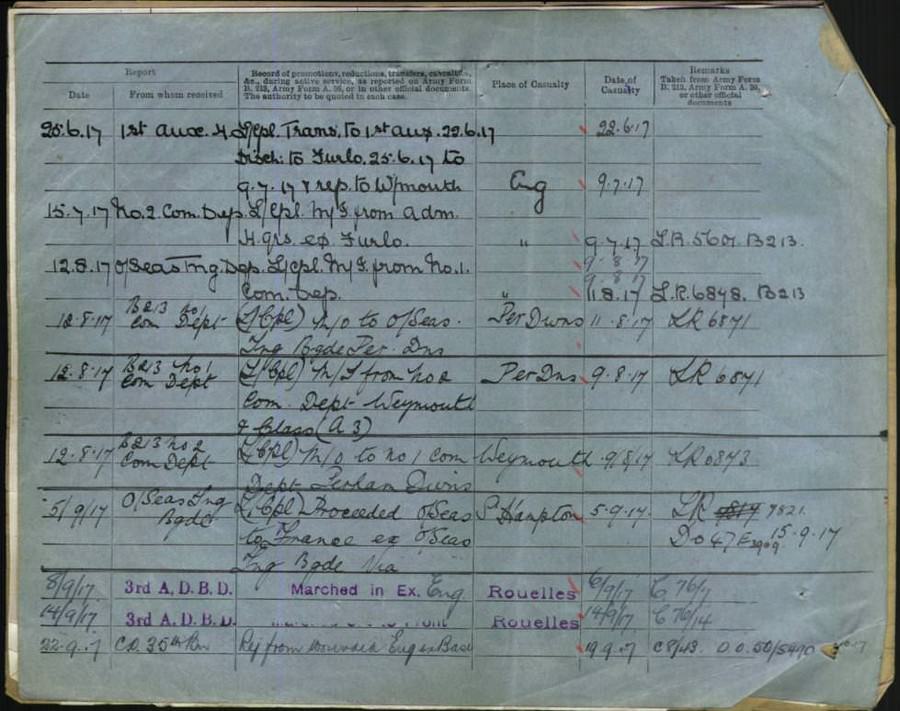 Report
Record of promotions, reductions, transfers, casualties,
&c., during active service, as reported on Army Form
B. 213, Army Form A. 36, or in other official documents.
The authority to be quoted in each case.
Place of Casualty
Date of
Casualty
Remarks
Taken from Army Form
B. 213, Army Form A. 36,
or other official
documents
Date
From whom received
25.6.17 1st Aux. H. L/Cpl. Trans. to 1st Aux. 22.6.17 22.6.17
Disch: to Furlo. 25.6.17 to
9.7.17 & rep. to W/mouth Eng 9.7.17
15.7.17 No. 2 Com. Dep. L/Cpl. M/I from Adm.
H. qrs. ex Furlo. " 9.7.17 L.R. 5601. B213.
12.8.17 O/Seas Tng. Dep. L/Cpl. M/I. from No. 1. 9.8.17
9.8.17
Com. Dep. " 11.8.17 L.R. 6848. B213
12.8.17 B213 No 1
Com Dept (L/Cpl) M/O to O/Seas. Per Dwns 11.8.17 LR 6871
Tng Bgde Per. Dns
12.8.17 B213 No 1
Com Dept (L/Cpl) M/I from No 2 Per Dns 9.8.17 LR 6871
Com. Dept Weymouth
& Class (A 3)
12.8.17 B213 No 2
Com Dept (L/Cpl) M/O to No 1 Com Weymouth 9/8/17 LR 6873
Dept Dwns
5/9/17 O/Seas Tng
Bgde (L/Cpl) Proceeded O/Seas S'Hampton 5.9.17. LR 9821.
to France ex O/Seas Do 47 E3909 15.9.17
Tng Bgde Via
8/9/17 3rd A. D. B. D. Marched in Ex. Eng. Rouelles 6/9/17 C 76/7
14/9/17 3rd A. D. B. D. Rouelles 14/9/17 C 76/14
22.9.17 C.O. 35th Bn Rej from Wounded Eng ex Base 19.9.17 C8/43 D.O. 50/5490